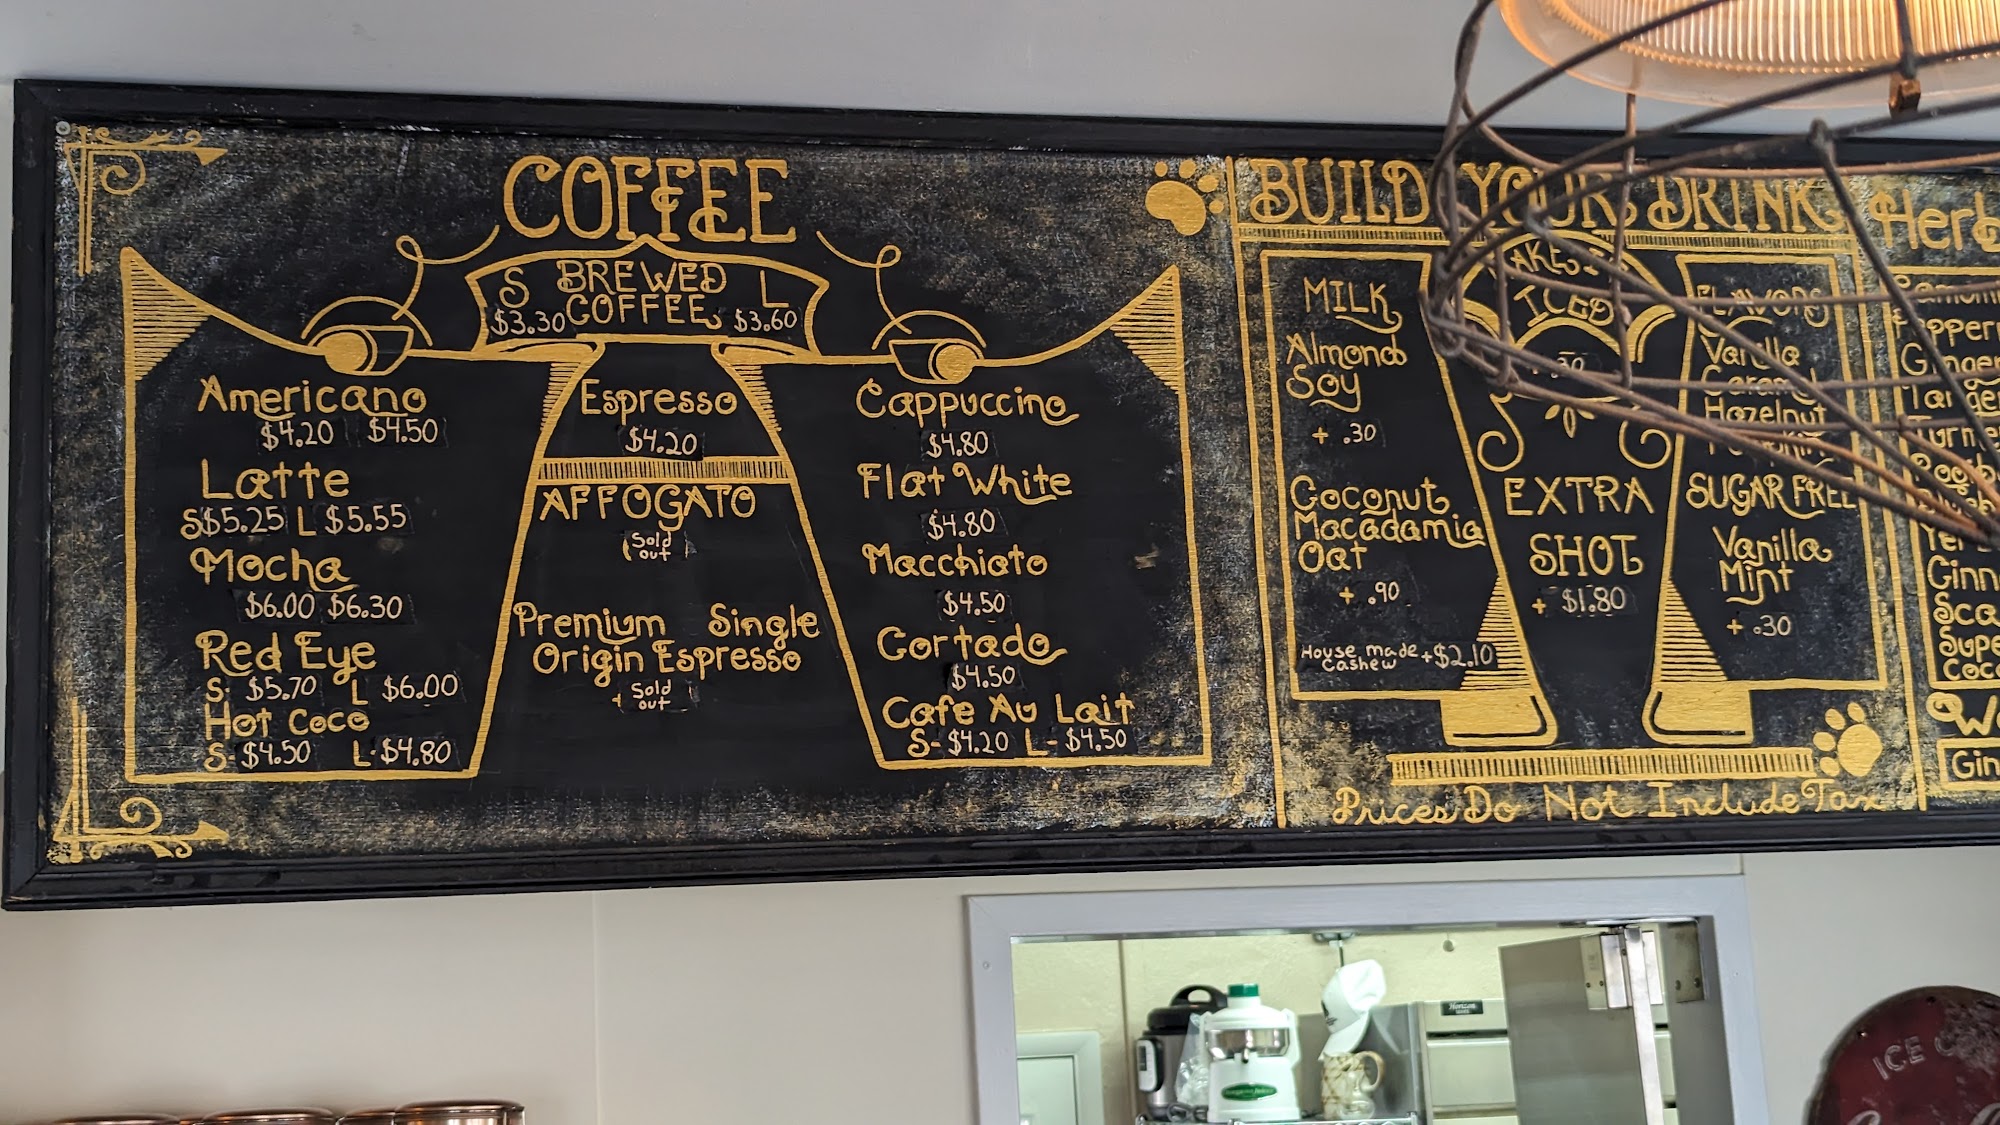 COFFEE
S BREWED L
$3.30 COFFEE $3.60
Americano
$4.20 $4.50
Latte
S $5.25 L $5.55
Mocha
$6.00 $6.30
Red Eye
S- $5.70 L $6.00
Hot Coco
S- $4.50 L- $4.80
Espresso
$4.20
AFFOGATO
Sold
out
Premium Single
Origin Espresso
Sold
out
Cappuccino
$4.80
Flat White
$4.80
Macchiato
$4.50
Cortado
$4.50
Cafe Au Lait
S- $4.20 L- $4.50
BUILD YOUR DRINK
MILK
Almond
Soy
+ .30
Coconut
Macadamia
Oat
+ .90
House made
Cashew +$2.10
ICED
EXTRA
SHOT
+ $1.80
FLAVORS
Vanilla
Caramel
Hazelnut
SUGAR FREE
Vanilla
Mint
+ .30
Prices Do Not Include Tax
Horizon
ICE